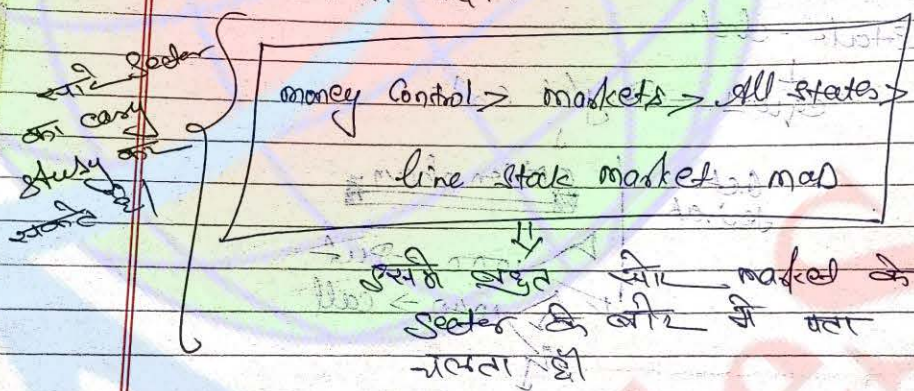 सारे Sector
का easy
study कर
सकते
money Control > markets > All states >
line Stock market map
इसमें बहुत सारे market के
Sector के बारे में पता
चलता है।